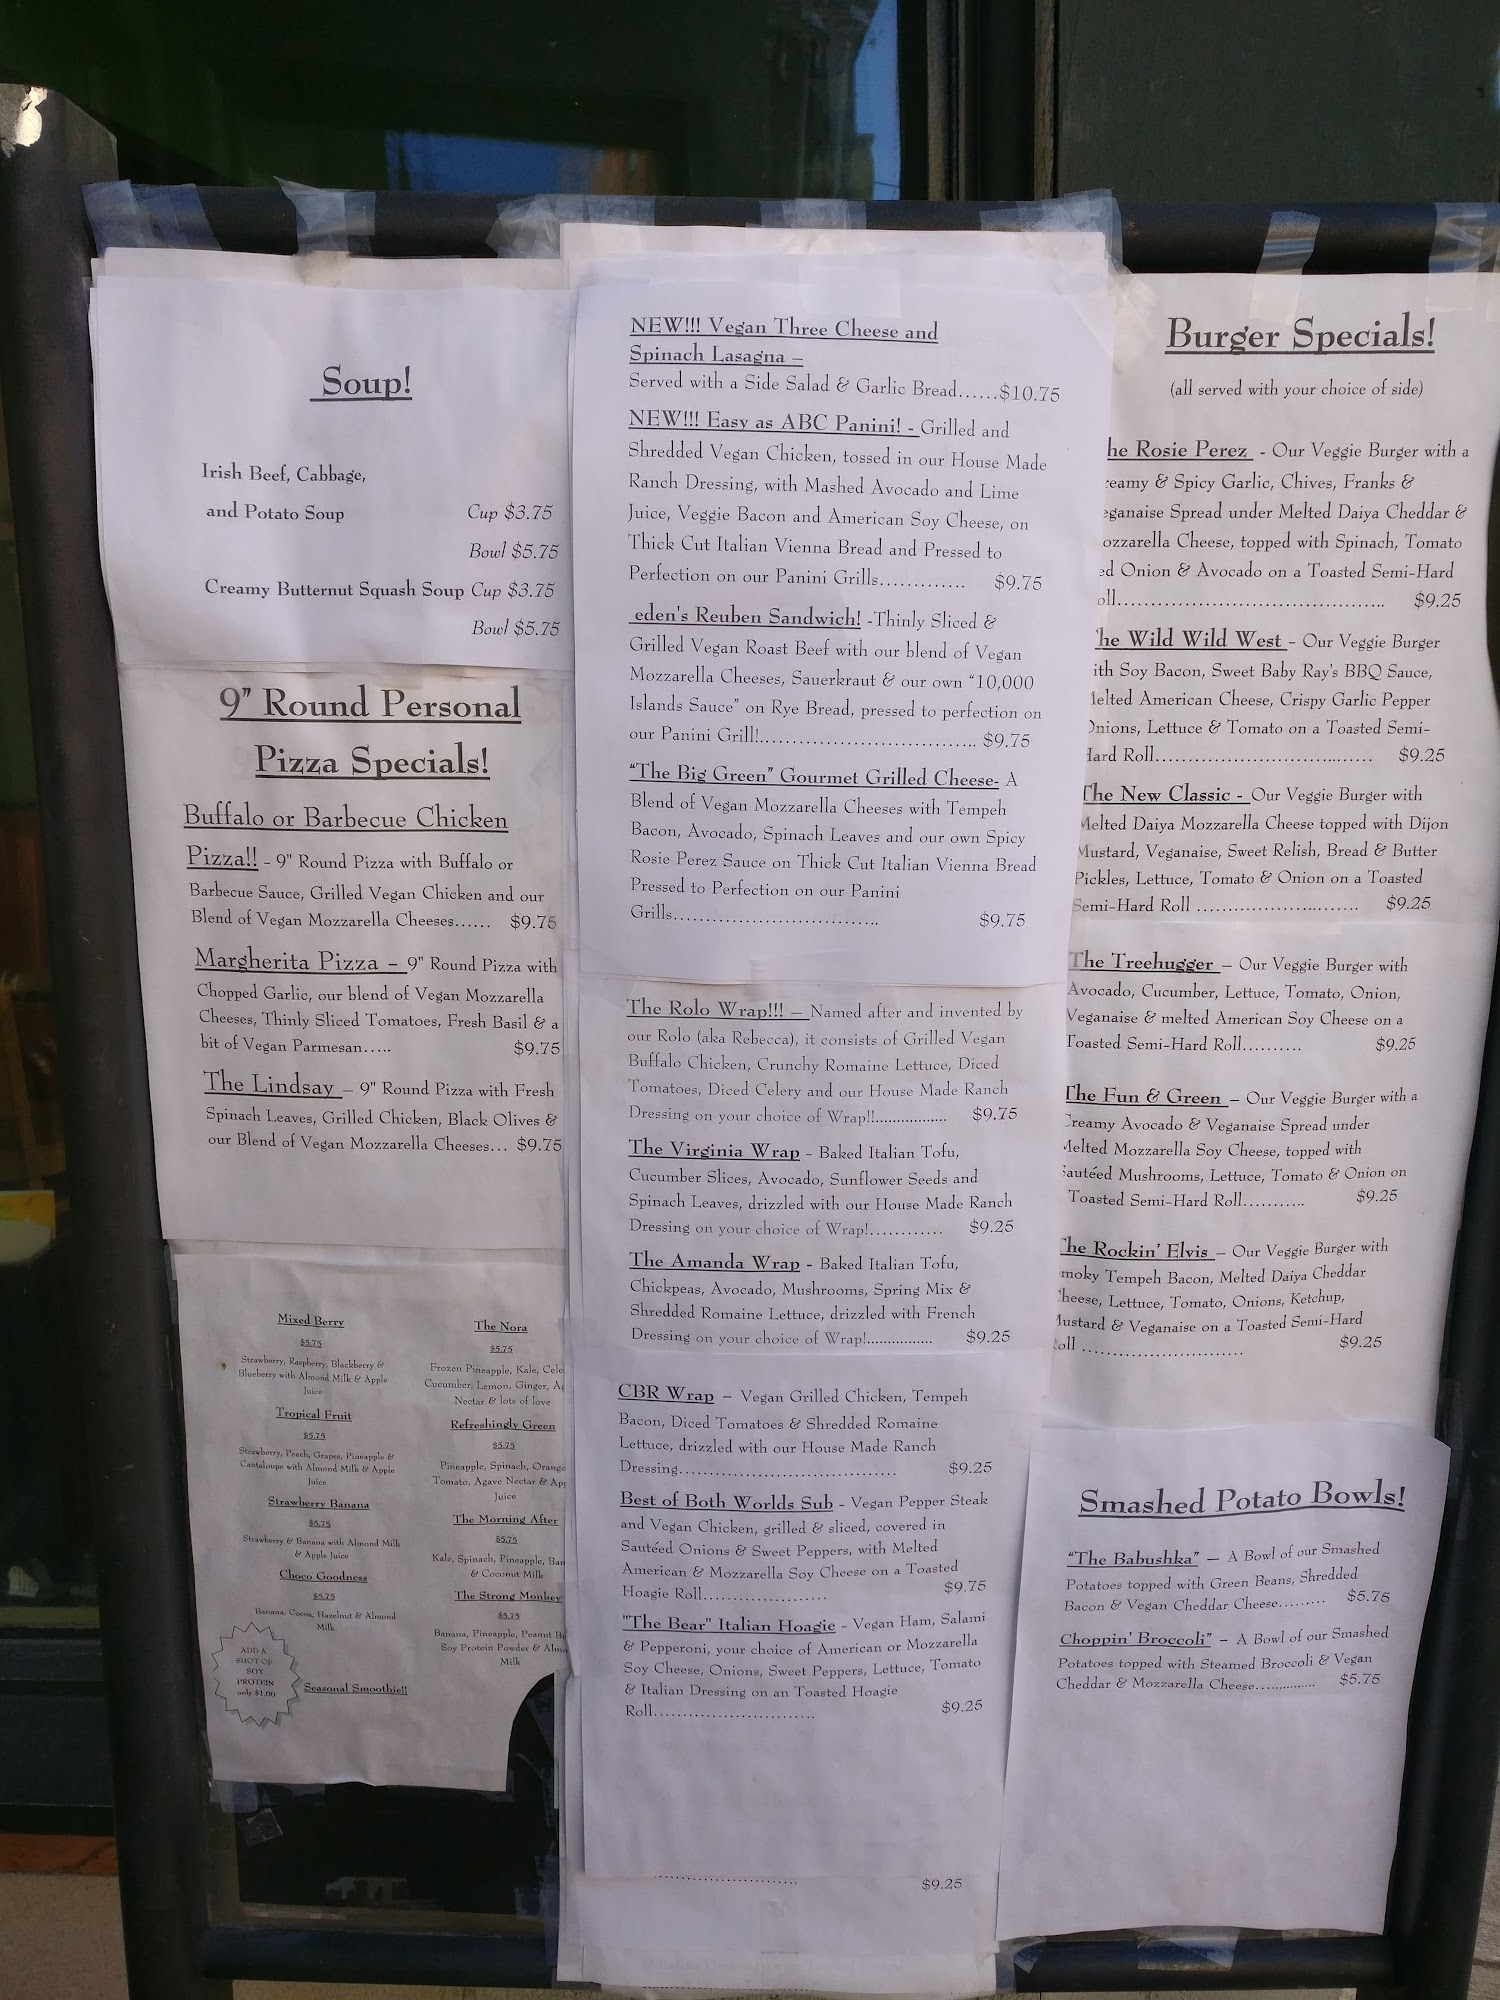 Soup!
Irish Beef, Cabbage,
and Potato Soup Cup $3.75
Bowl $5.75
Creamy Butternut Squash Soup Cup $3.75
Bowl $5.75
9" Round Personal
Pizza Specials!
Buffalo or Barbecue Chicken
Pizza!! - 9" Round Pizza with Buffalo or
Barbecue Sauce, Grilled Vegan Chicken and our
Blend of Vegan Mozzarella Cheeses…… $9.75
Margherita Pizza – 9" Round Pizza with
Chopped Garlic, our blend of Vegan Mozzarella
Cheeses, Thinly Sliced Tomatoes, Fresh Basil & a
bit of Vegan Parmesan….. $9.75
The Lindsay – 9" Round Pizza with Fresh
Spinach Leaves, Grilled Chicken, Black Olives &
our Blend of Vegan Mozzarella Cheeses… $9.75
Mixed Berry
$5.75
Strawberry, Raspberry, Blackberry &
Blueberry with Almond Milk & Apple
Juice
Tropical Fruit
$5.75
Strawberry, Peach, Grapes, Pineapple &
Cantaloupe with Almond Milk & Apple
Juice
Strawberry Banana
$5.75
Strawberry & Banana with Almond Milk
& Apple Juice
Choco Goodness
$5.75
Banana, Cocoa, Hazelnut & Almond
Milk
ADD A
SHOT OF
SOY
PROTEIN
only $1.00
Seasonal Smoothie!!
The Nora
$5.75
Frozen Pineapple, Kale, Cele
Cucumber, Lemon, Ginger, Ag
Nectar & lots of love
Refreshingly Green
$5.75
Pineapple, Spinach, Orange
Tomato, Agave Nectar & App
Juice
The Morning After
$5.75
Kale, Spinach, Pineapple, Ban
& Coconut Milk
The Strong Monkey
$5.75
Banana, Pineapple, Peanut Bu
Soy Protein Powder & Almo
Milk
NEW!!! Vegan Three Cheese and
Spinach Lasagna –
Served with a Side Salad & Garlic Bread……$10.75
NEW!!! Easy as ABC Panini! - Grilled and
Shredded Vegan Chicken, tossed in our House Made
Ranch Dressing, with Mashed Avocado and Lime
Juice, Veggie Bacon and American Soy Cheese, on
Thick Cut Italian Vienna Bread and Pressed to
Perfection on our Panini Grills…………. $9.75
eden's Reuben Sandwich! -Thinly Sliced &
Grilled Vegan Roast Beef with our blend of Vegan
Mozzarella Cheeses, Sauerkraut & our own “10,000
Islands Sauce” on Rye Bread, pressed to perfection on
our Panini Grill!…………………………….. $9.75
“The Big Green” Gourmet Grilled Cheese- A
Blend of Vegan Mozzarella Cheeses with Tempeh
Bacon, Avocado, Spinach Leaves and our own Spicy
Rosie Perez Sauce on Thick Cut Italian Vienna Bread
Pressed to Perfection on our Panini
Grills…………………………. $9.75
The Rolo Wrap!!! – Named after and invented by
our Rolo (aka Rebecca), it consists of Grilled Vegan
Buffalo Chicken, Crunchy Romaine Lettuce, Diced
Tomatoes, Diced Celery and our House Made Ranch
Dressing on your choice of Wrap!!.................. $9.75
The Virginia Wrap - Baked Italian Tofu,
Cucumber Slices, Avocado, Sunflower Seeds and
Spinach Leaves, drizzled with our House Made Ranch
Dressing on your choice of Wrap!………… $9.25
The Amanda Wrap - Baked Italian Tofu,
Chickpeas, Avocado, Mushrooms, Spring Mix &
Shredded Romaine Lettuce, drizzled with French
Dressing on your choice of Wrap!................ $9.25
CBR Wrap – Vegan Grilled Chicken, Tempeh
Bacon, Diced Tomatoes & Shredded Romaine
Lettuce, drizzled with our House Made Ranch
Dressing………………………………. $9.25
Best of Both Worlds Sub - Vegan Pepper Steak
and Vegan Chicken, grilled & sliced, covered in
Sautéed Onions & Sweet Peppers, with Melted
American & Mozzarella Soy Cheese on a Toasted
Hoagie Roll………………… $9.75
"The Bear" Italian Hoagie - Vegan Ham, Salami
& Pepperoni, your choice of American or Mozzarella
Soy Cheese, Onions, Sweet Peppers, Lettuce, Tomato
& Italian Dressing on an Toasted Hoagie
Roll………………………. $9.25
…………………… $9.25
Burger Specials!
(all served with your choice of side)
he Rosie Perez - Our Veggie Burger with a
reamy & Spicy Garlic, Chives, Franks &
eganaise Spread under Melted Daiya Cheddar &
ozzarella Cheese, topped with Spinach, Tomato
ed Onion & Avocado on a Toasted Semi-Hard
oll…………………………………….. $9.25
The Wild Wild West - Our Veggie Burger
ith Soy Bacon, Sweet Baby Ray's BBQ Sauce,
Melted American Cheese, Crispy Garlic Pepper
Onions, Lettuce & Tomato on a Toasted Semi-
Hard Roll………………………....... $9.25
The New Classic - Our Veggie Burger with
Melted Daiya Mozzarella Cheese topped with Dijon
Mustard, Veganaise, Sweet Relish, Bread & Butter
Pickles, Lettuce, Tomato & Onion on a Toasted
Semi-Hard Roll ………………..…….. $9.25
The Treehugger – Our Veggie Burger with
Avocado, Cucumber, Lettuce, Tomato, Onion,
Veganaise & melted American Soy Cheese on a
Toasted Semi-Hard Roll………. $9.25
The Fun & Green – Our Veggie Burger with a
Creamy Avocado & Veganaise Spread under
Melted Mozzarella Soy Cheese, topped with
Sautéed Mushrooms, Lettuce, Tomato & Onion on
Toasted Semi-Hard Roll……….. $9.25
The Rockin' Elvis – Our Veggie Burger with
moky Tempeh Bacon, Melted Daiya Cheddar
heese, Lettuce, Tomato, Onions, Ketchup,
Mustard & Veganaise on a Toasted Semi-Hard
Roll ………………………. $9.25
Smashed Potato Bowls!
“The Babushka” – A Bowl of our Smashed
Potatoes topped with Green Beans, Shredded
Bacon & Vegan Cheddar Cheese……… $5.75
Choppin' Broccoli” – A Bowl of our Smashed
Potatoes topped with Steamed Broccoli & Vegan
Cheddar & Mozzarella Cheese…............ $5.75